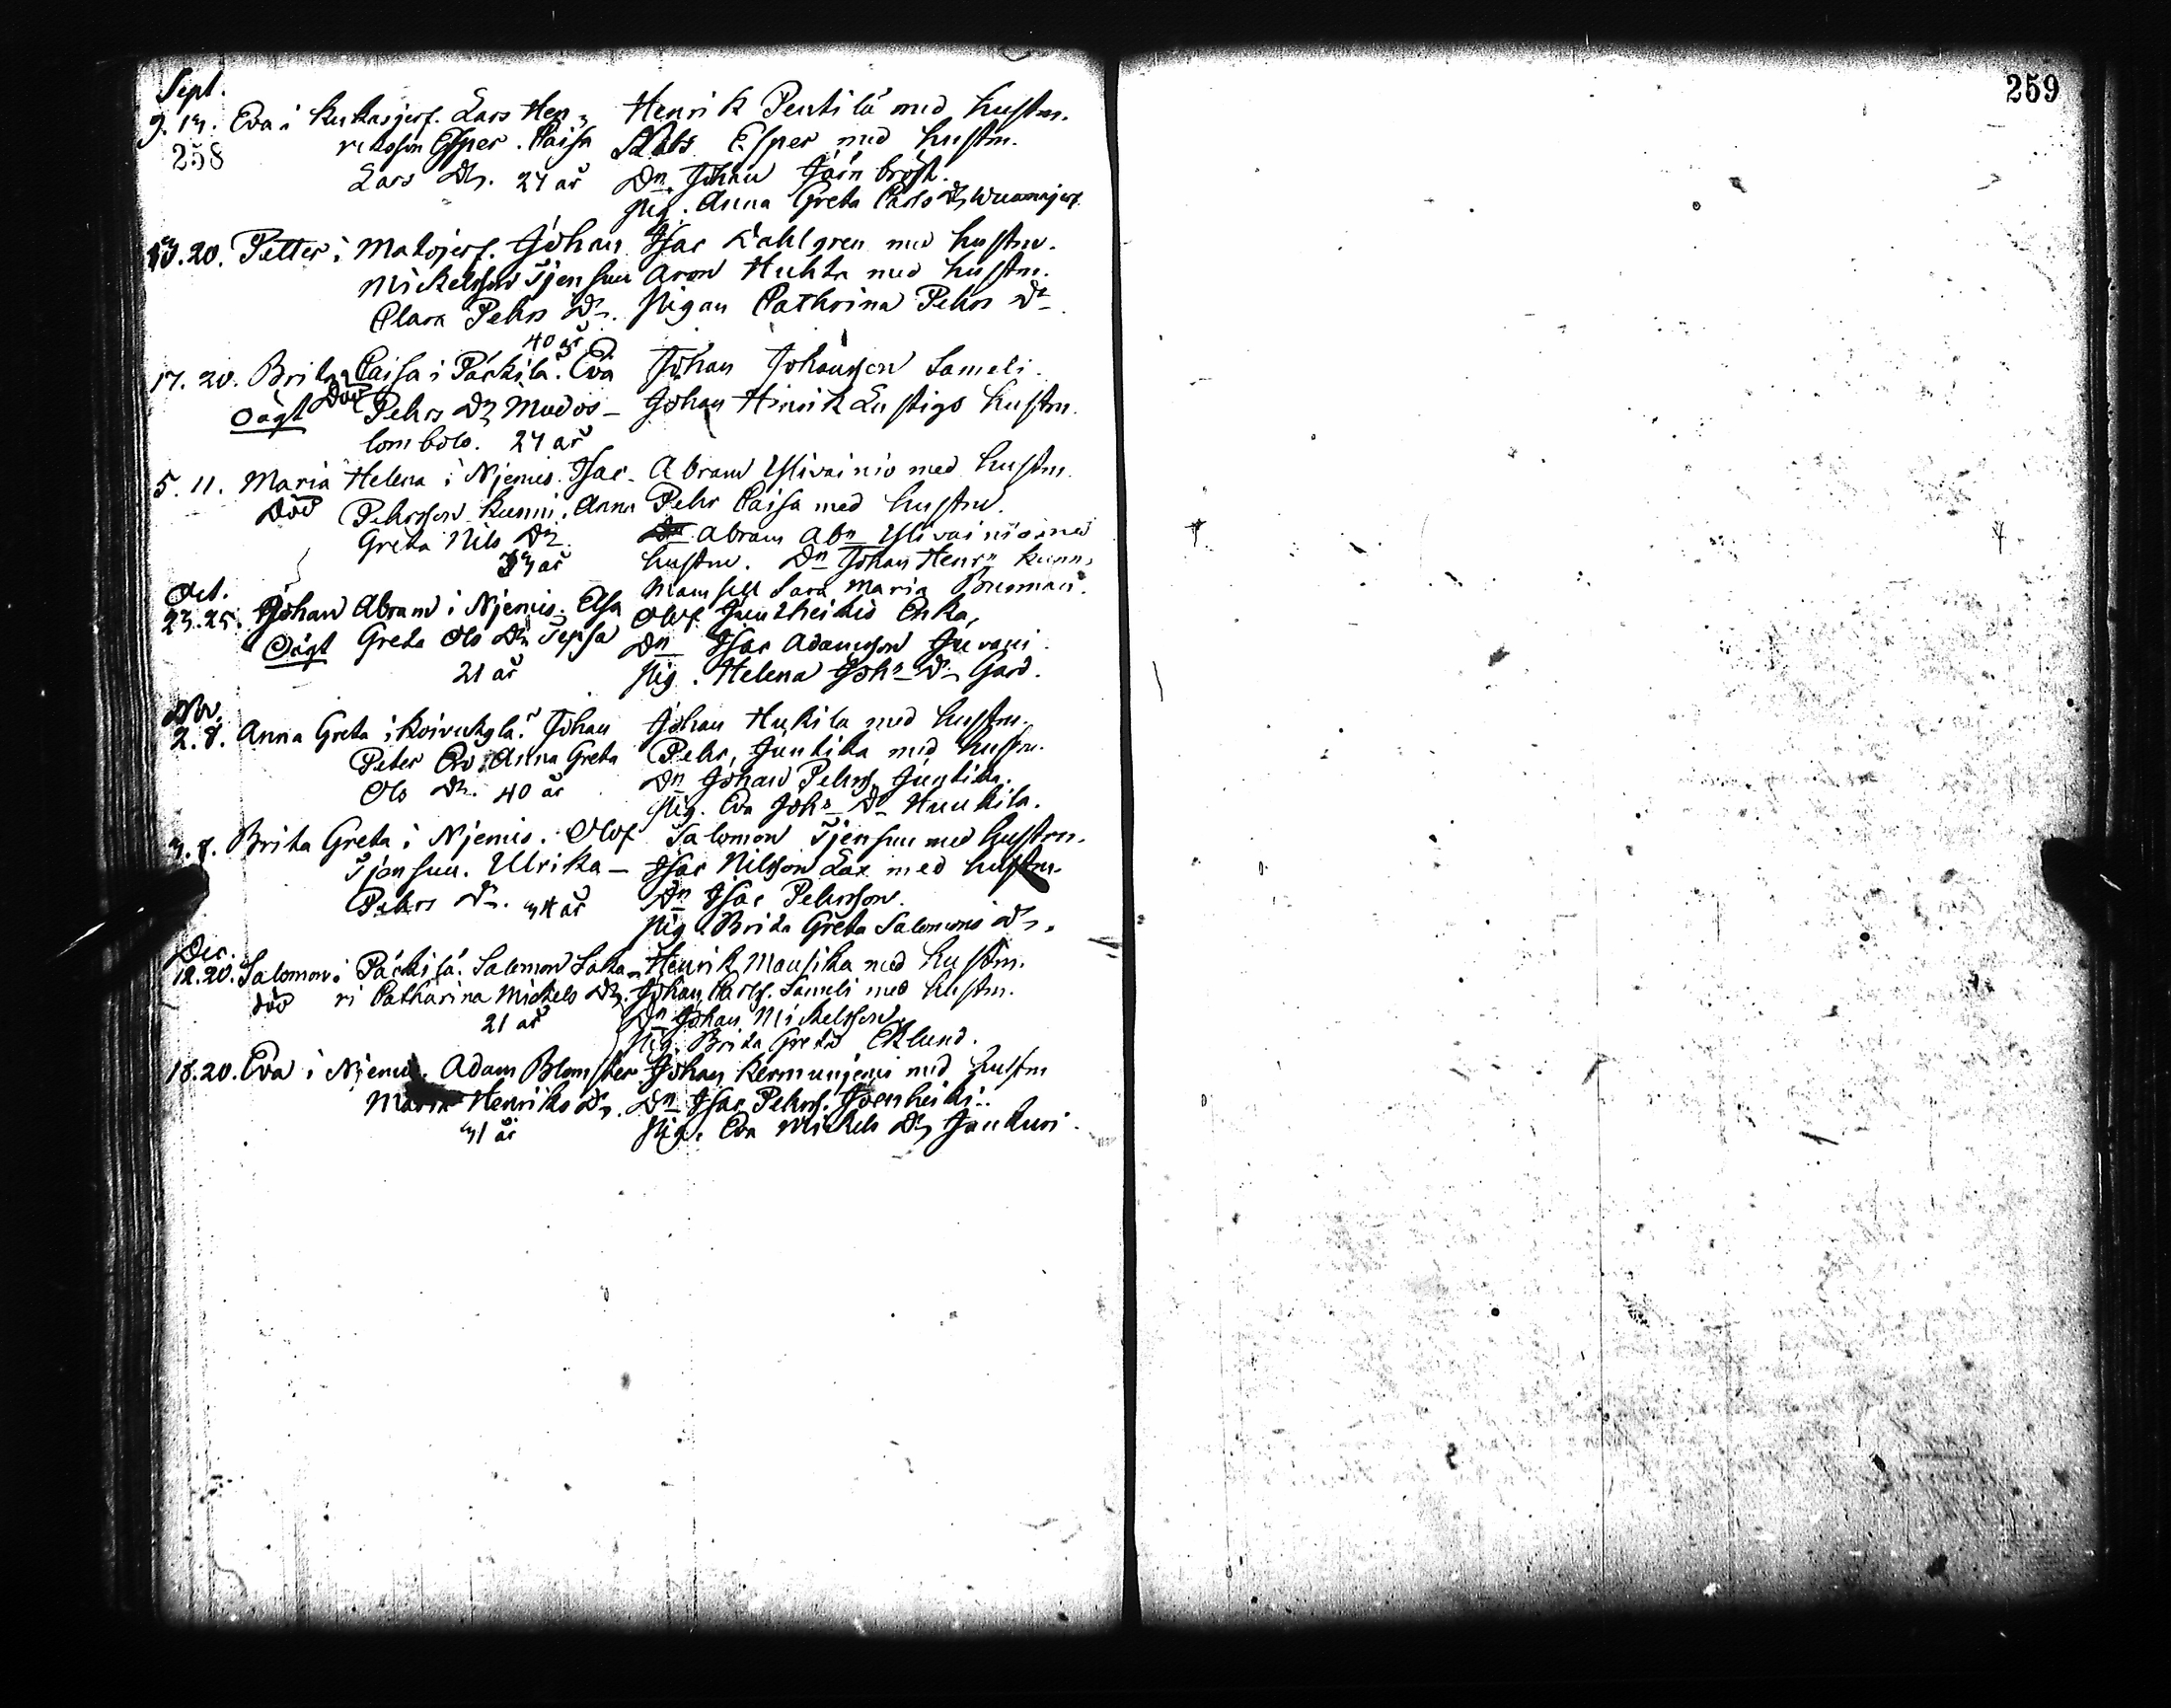 Sept.
9. 13. Eva i Kukasjerf. Lars Hen-
258
riksson Esper. Caisa
Lars Dr. 24 år
Henrik Pentilä med hustru.
Esper med hustru.
Dn. Johan
Pig. Anna Greta Carls Dr
13. 20. Petter i Matojerf. Johan
Mickelsson Tjensuu
Clara Pehrs Dr.
40 år
Isac Dahlgren med hustru.
Aron Huhta med hustru.
Pigan Cathrina Pehrs Dr
17. 20. Brita Caisa i Päckilä. Eva
Död
oägt Pehrs Dr Muodos-
lombolo. 24 år
Johan Johansson Sameli.
Johan Hinrik Lustigs hustru.
5. 11. Maria Helena i Njemis. Isac
Död Pehrsson Kunni. Anna
Greta Nils Dr.
år
Abram Ylivainio med hustru.
Pehr Caisa med hustru.
Abram Abrn Ylivainio med
hustru. Dn Johan Henr
Mamsell Sara Maria
Oct.
23. 25. Johan Abram i Njemis. Elsa
Oägt Greta Ols Dr
21 år
Olof Junkheikis Enka,
Dn Isac Adamsson Juvani.
Pig. Helena Johs Dr Gard.
Nov.
2. 8. Anna Greta i Koivukylä. Johan
Peter Anna Greta
Ols Dr. 40 år
Johan Hukila med hustru.
Pehr, Juntika med hustru.
Dn Johan Pehrs. Juntika.
Pig. Eva Johs Dr Huukila.
3. 8. Brita Greta i Njemis. Olof
Tjensuu. Ulrika
Pehrs Dr. 34 år
Salomon Tjensuu med hustru.
Isac Nilsson Lax med hustru.
Dn Isac Pehrsson.
Pig. Brita Greta Salomons Dr.
Dec.
12. 20. Salomon i Päckilä. Salomon Laka-
död ri Catharina Mickels Dr.
21 år
Henrik Mausika med hustru.
Johan Carls. Sameli med hustru.
Dn Johan Mickelsson.
Pig. Brita Greta Eklund.
18. 20. Eva i Njemis. Adam Blomster
Maria Henriks Dr.
31 år
Johan Kermunjemi med hustru
Dn Isac Pehrs. Joenheiki.
Pig. Eva Mickels Dr Jankuri.
259